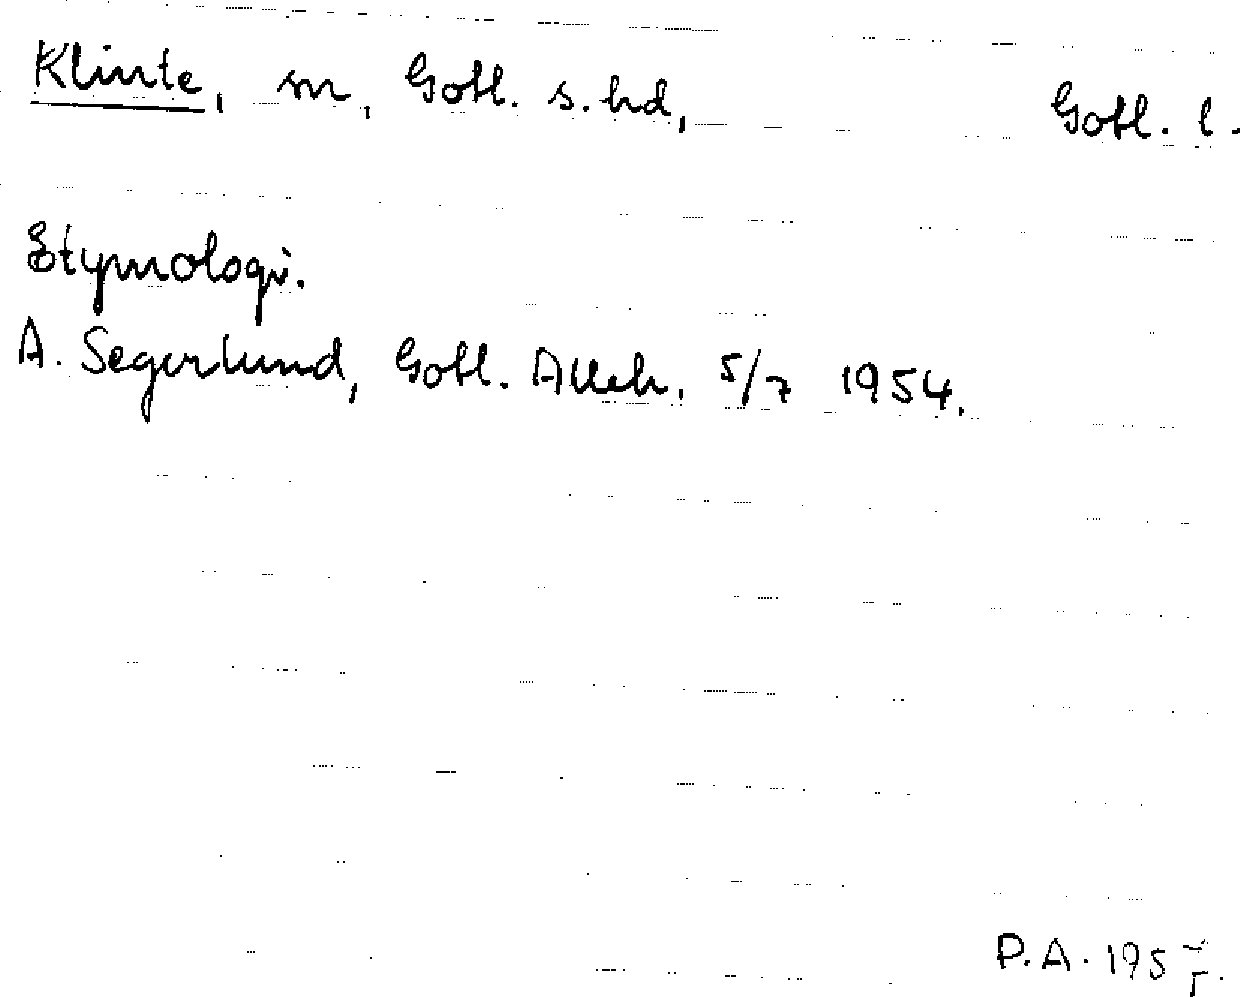 Klinte, sn, Gotl. s. hd, Gotl. l.
Etymologi.
A. Segerlund, Gotl. Alleh. 5/7 1954.
P.A. 195